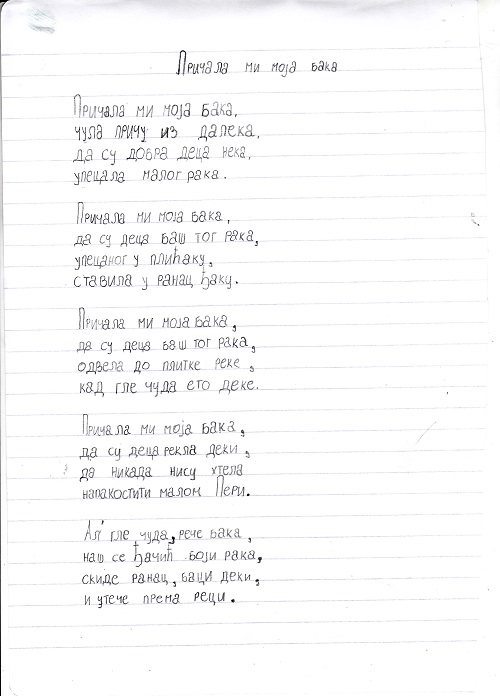 Причала ми моја бака
Причала ми моја бака,
чула причу из далека,
да су добра деца нека,
упецала малог рака.
Причала ми моја бака,
да су деца баш тог рака,
упецаног у плићаку,
ставила у ранац ђаку.
Причала ми моја бака,
да су деца баш тог рака,
одвела до плитке реке,
кад гле чуда ето деке.
Причала ми моја бака,
да су деца рекла деки,
да никада нису хтела
напакостити малом Пери.
Ал' гле чуда, рече бака,
наш се ђачић боји рака,
скиде ранац, баци деки,
и утече према реци.